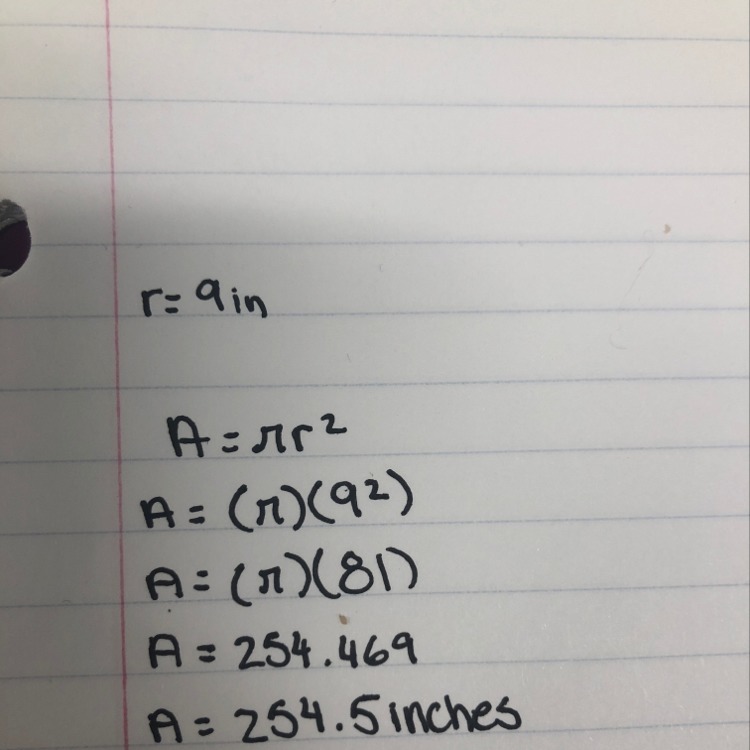 r= 9in
A = πr²
A = (π)(9²)
A = (π)(81)
A = 254.469
A = 254.5 inches